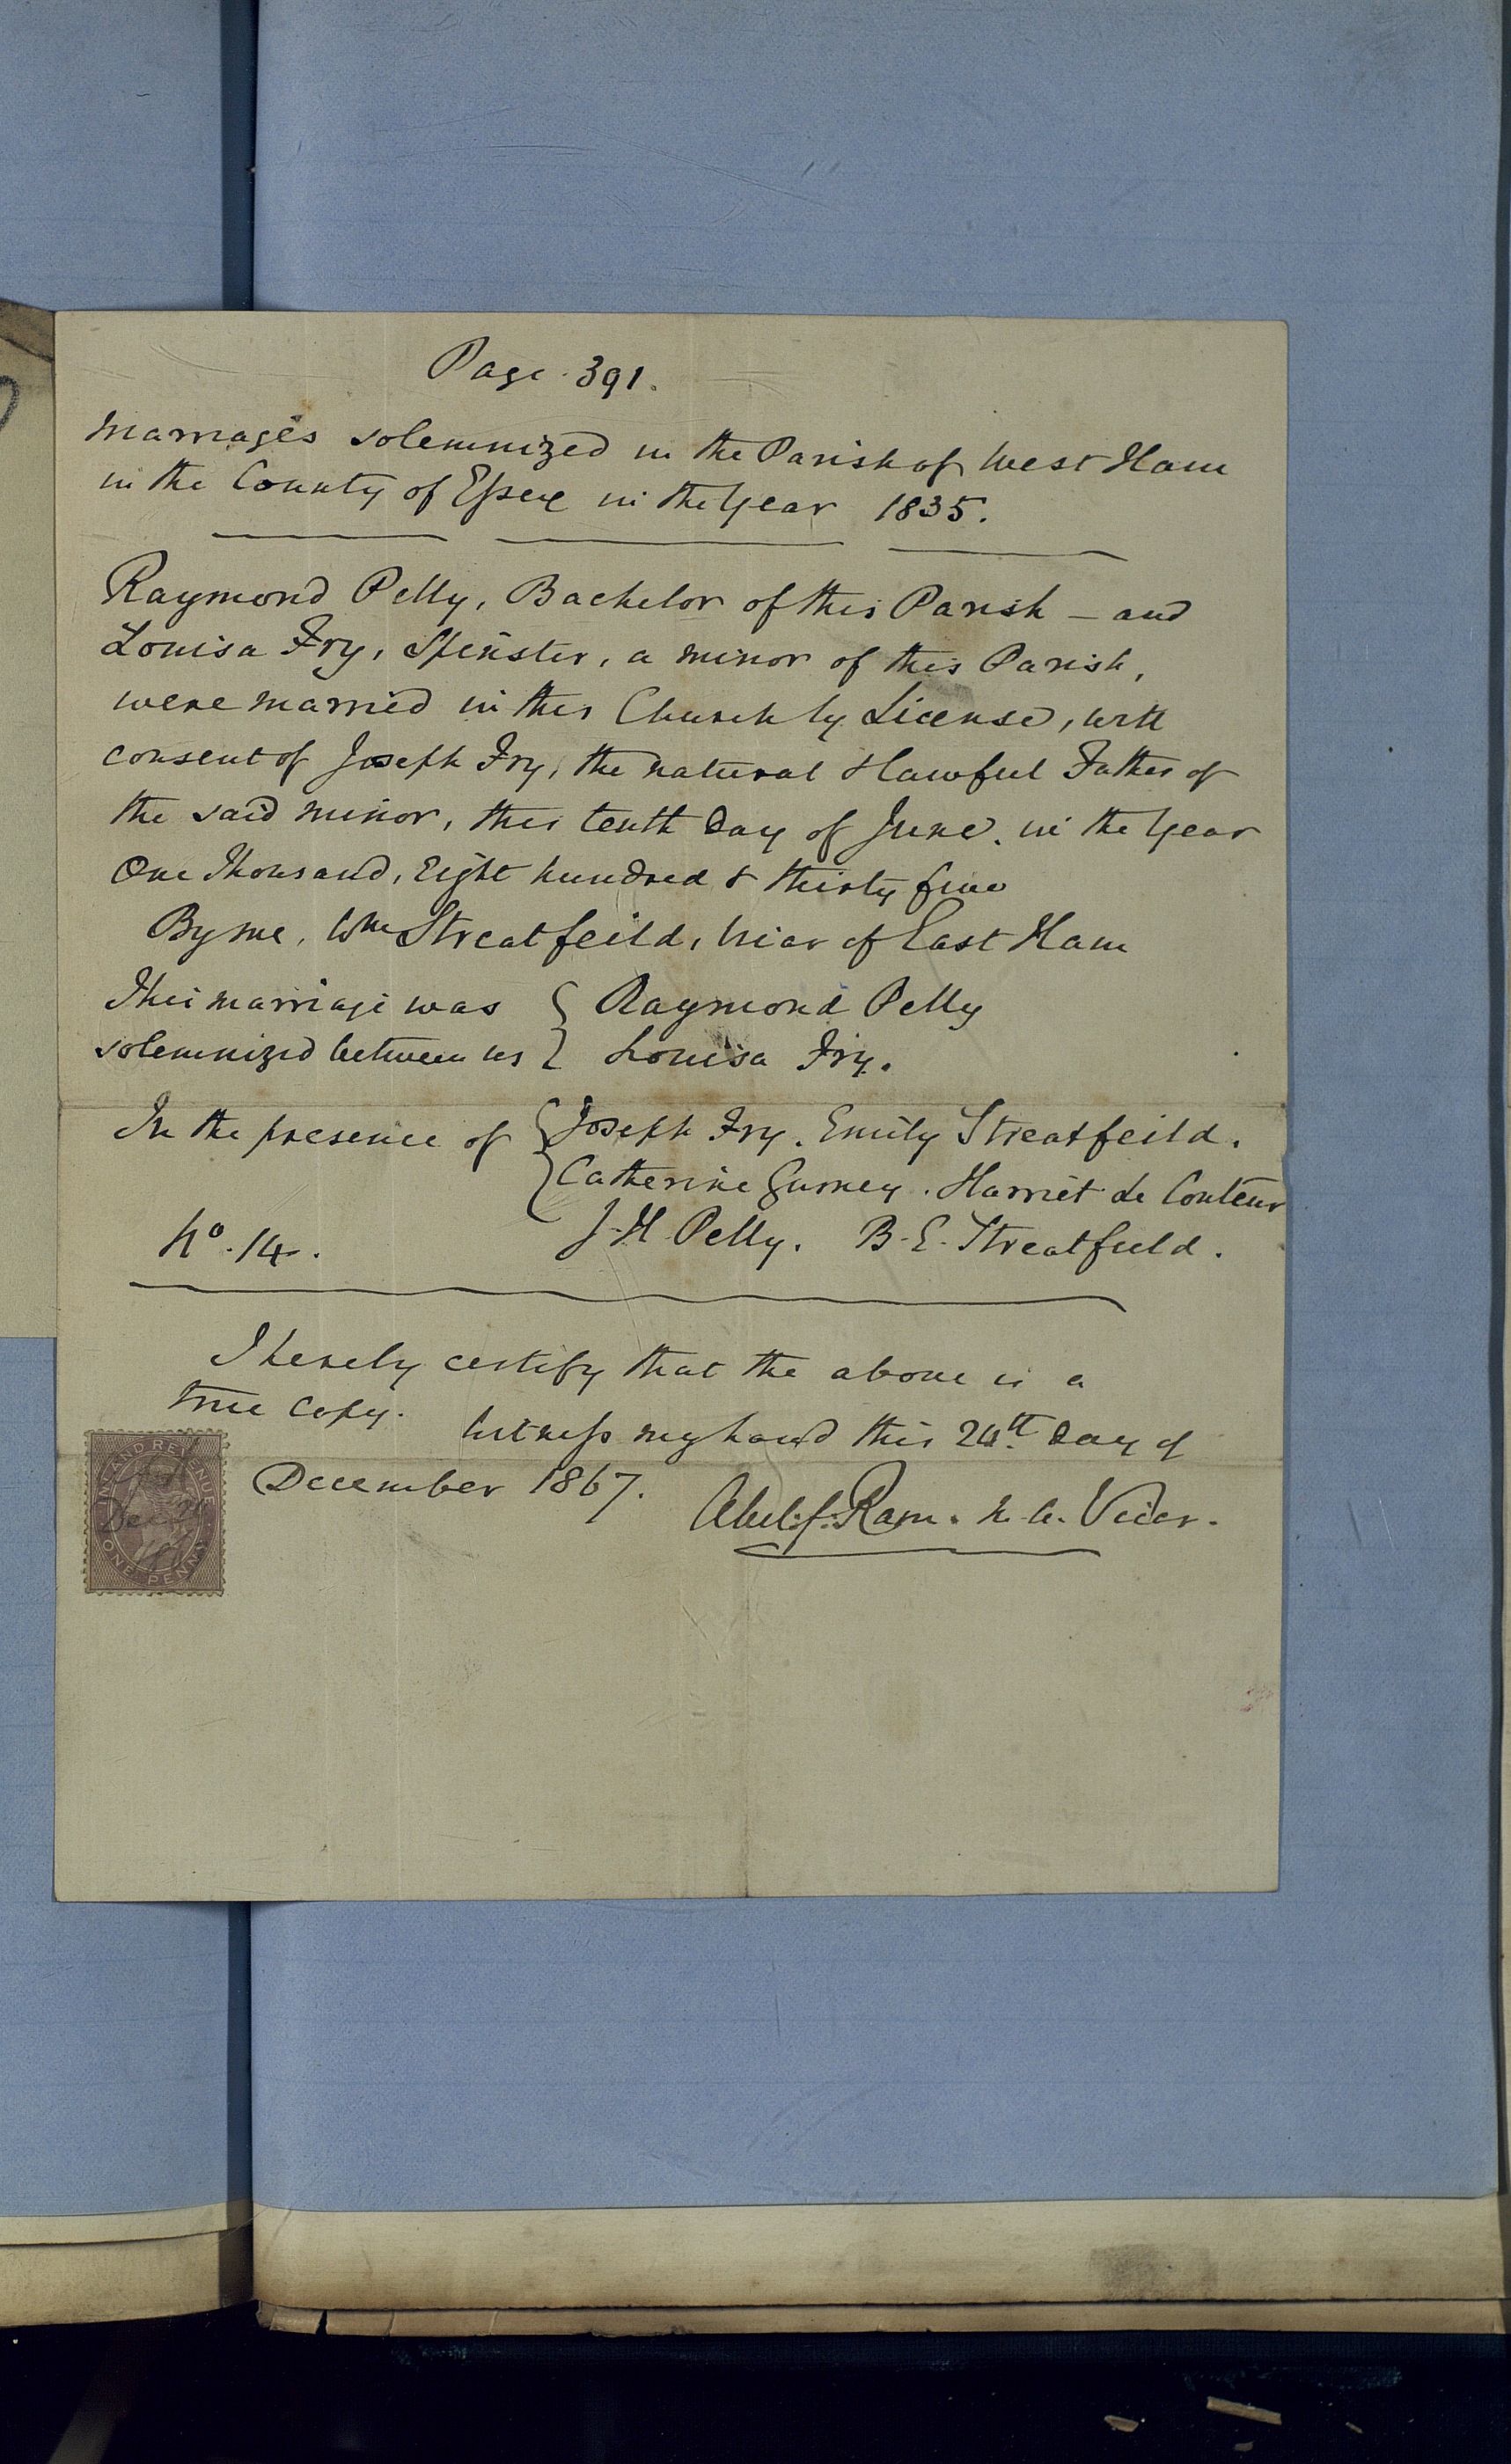 Page 391.
Marriages solemnized in the Parish of West Ham
in the County of Essex in the Year 1835.
Raymond Pelly, Bachelor of this Parish – and
Louisa Fry, Spinster, a minor of this Parish,
were married in this Church by License, with
consent of Joseph Fry, the natural & lawful Father of
the said minor, this tenth Day of June. in the Year
One Thousand, Eight hundred & thirty five
By me, Wm Streatfeild, Vicar of East Ham
This marriage was { Raymond Pelly
solemnized between us } Louisa Fry.
In the presence of { Joseph Fry. Emily Streatfeild.
Catherine Gurney. Harriet de Conteur
No. 14. J. H. Pelly. B. E. Streatfeild.
I hereby certify that the above is a
true Copy. Witness my hand this 24th Day of
December 1867. Abel J. Ram. M. A. Vicar.
INLAND REVENUE
Dec
ONE PENNY